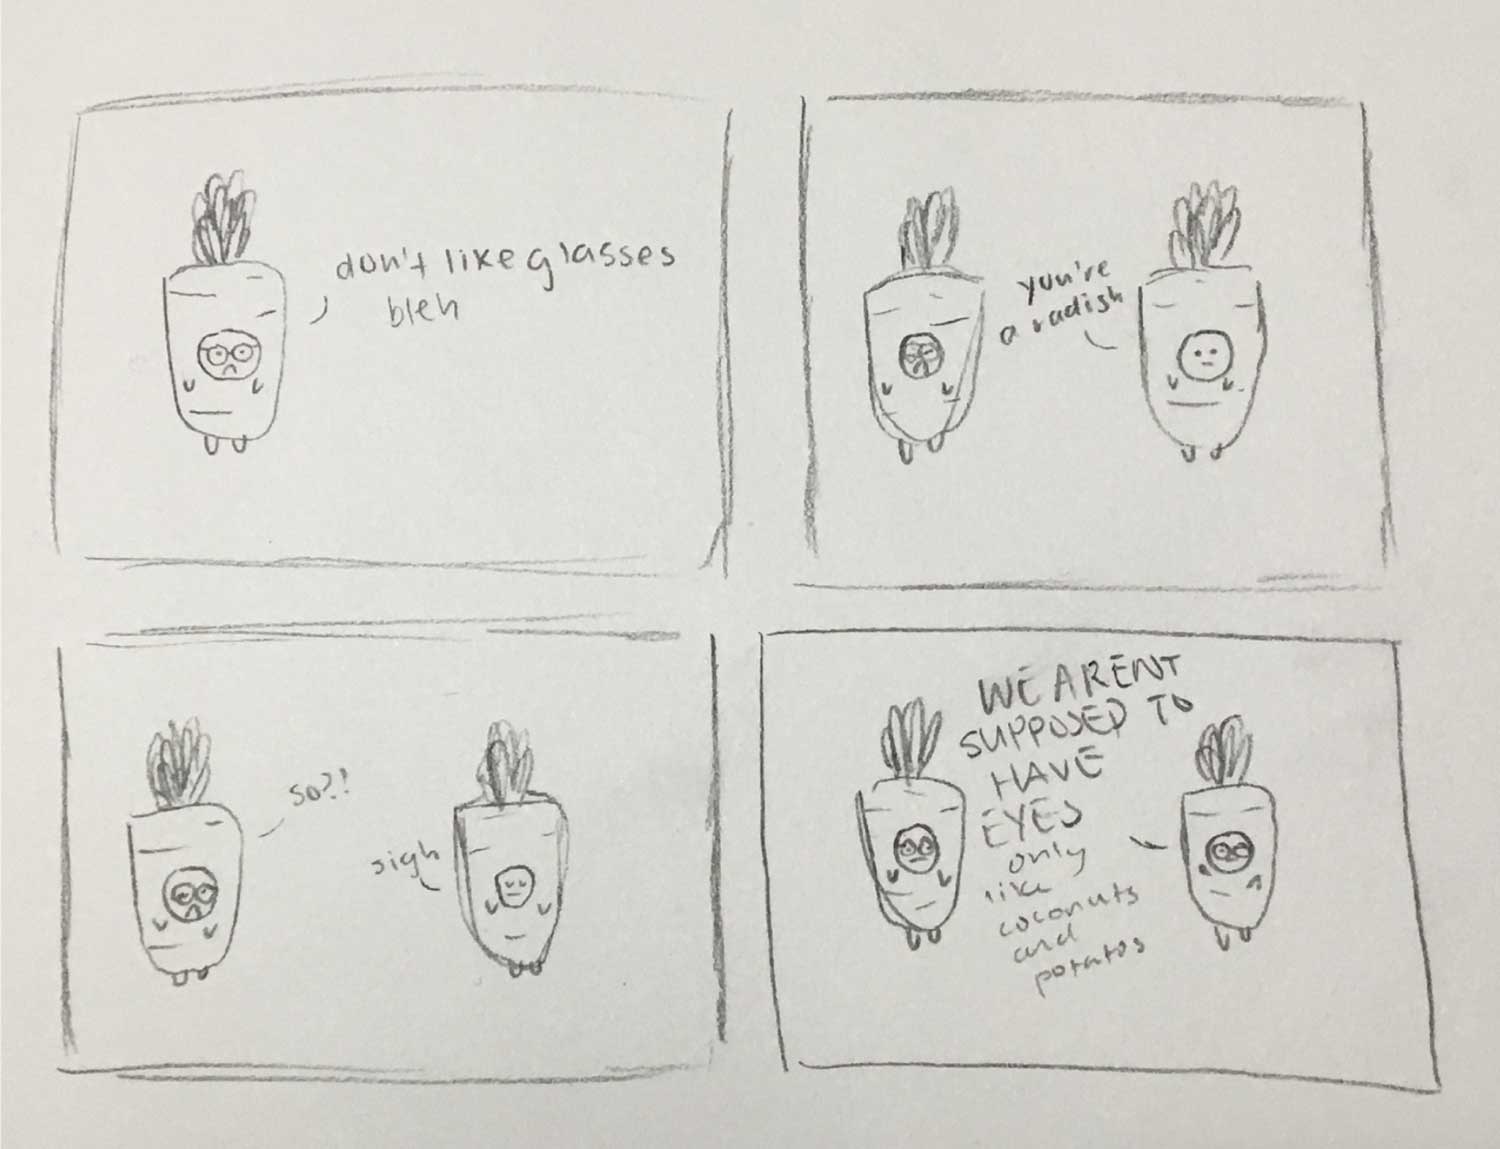 don't like glasses
bleh
you're
a radish
so?!
sigh
WE ARENT
SUPPOSED TO
HAVE
EYES
only
like
coconuts
and
potatos